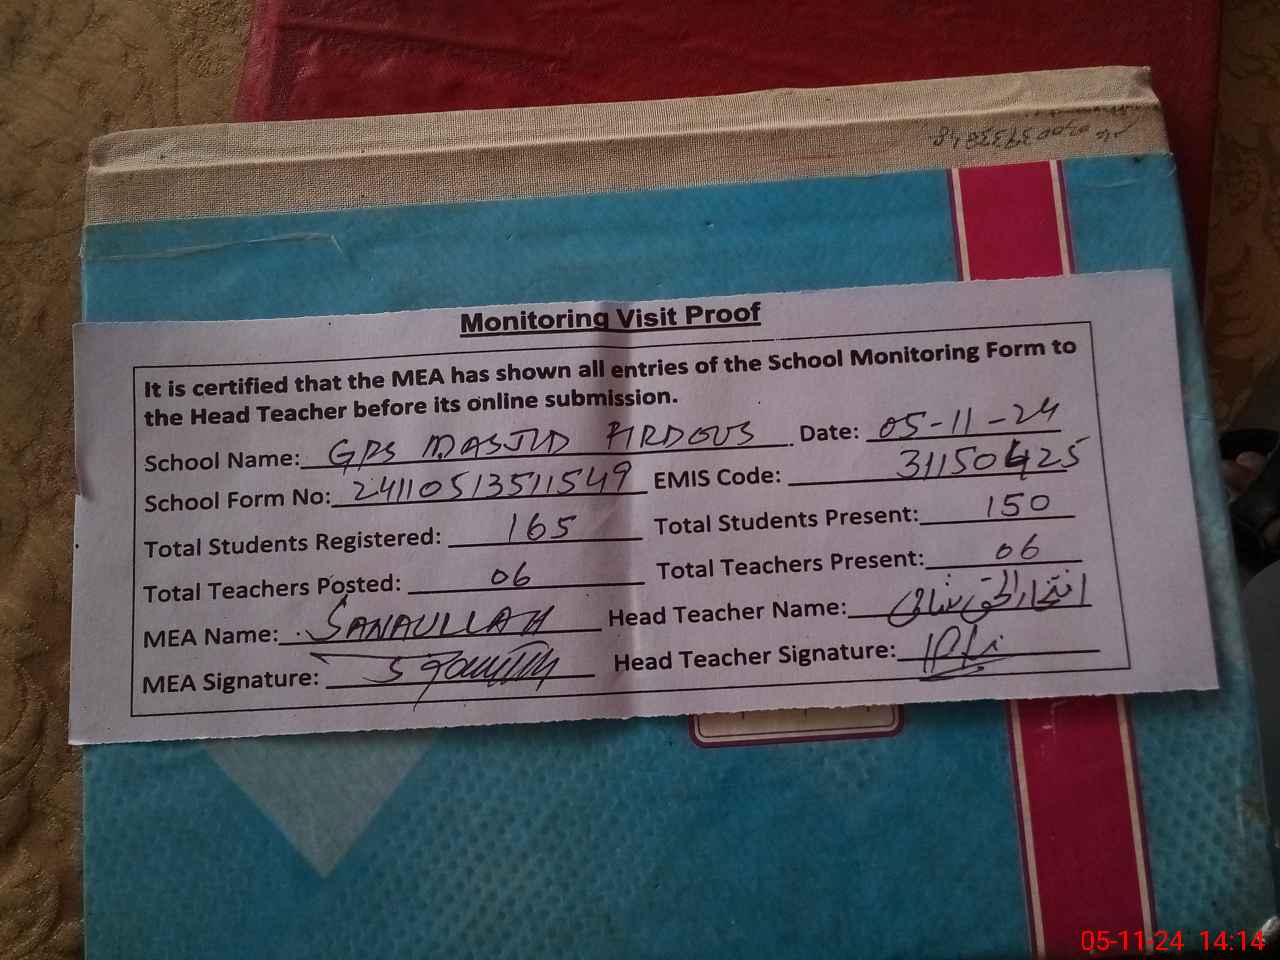 Monitoring Visit Proof
It is certified that the MEA has shown all entries of the School Monitoring Form to
the Head Teacher before its online submission.
School Name: GPS MASJID FIRDOUS Date: 05-11-24
School Form No: 2411051351154 9 EMIS Code: 31150425
Total Students Registered: 165 Total Students Present: 150
Total Teachers Posted: 06 Total Teachers Present: 06
MEA Name: SANAULLAH Head Teacher Name:
MEA Signature: Head Teacher Signature:
05-11-24 14:14